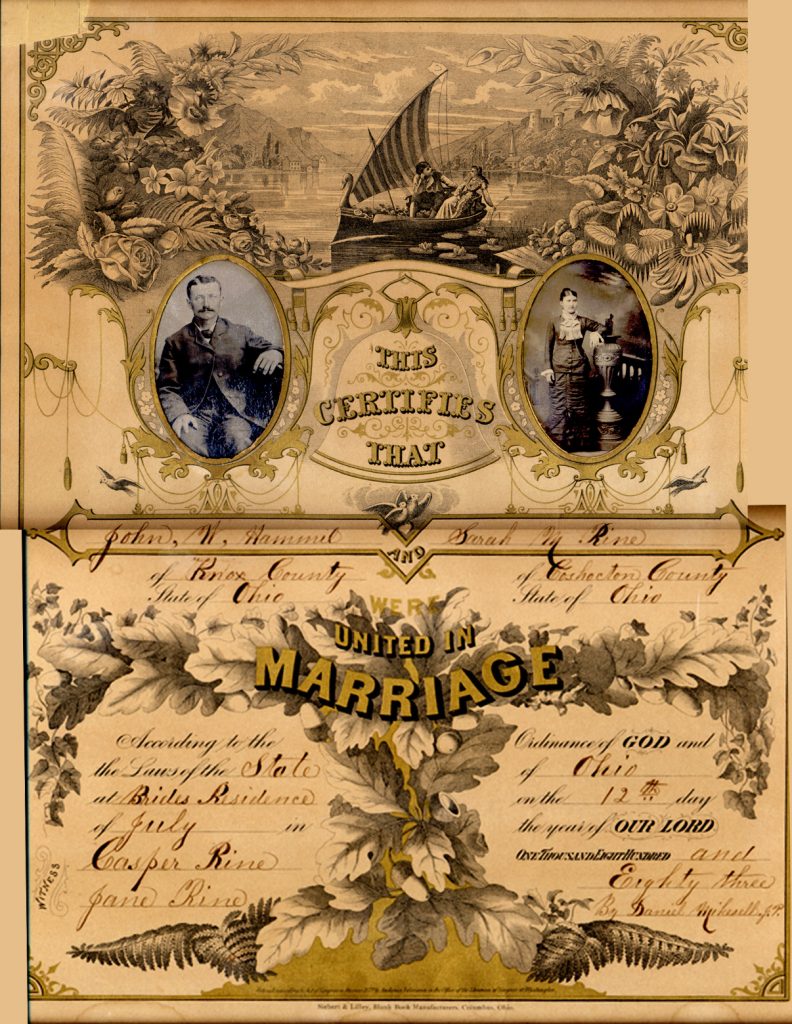 THIS
CERTIFIES
THAT
John, W, Hammel AND Sarah M Rine
of Knox County of Coshocton County
State of Ohio State of Ohio
WERE
UNITED IN
MARRIAGE
According to the Ordinance of GOD and
the Laws of the State of Ohio
at Brides Residence on the 12th day
of July in the year of OUR LORD
Casper Rine ONE THOUSAND EIGHT HUNDRED and
WITNESS Eighty three
Jane Rine By Daniel Mikesell. J.P.
Siebert & Lilley, Blank Book Manufacturers, Columbus, Ohio.